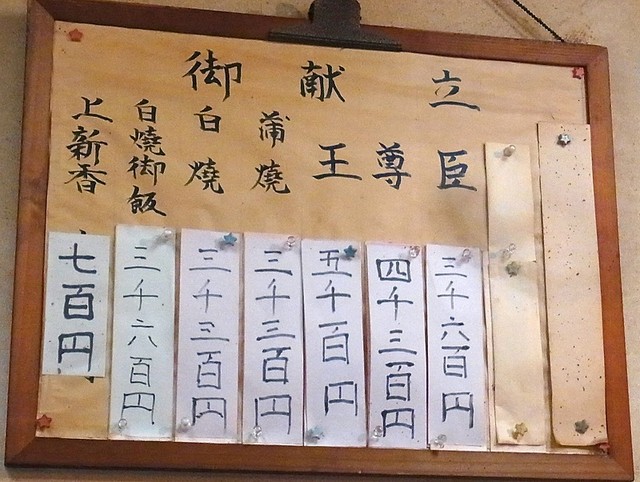 御献立
臣 三千六百円
尊 四千三百円
王 五千百円
蒲燒 三千三百円
白燒 三千三百円
白燒御飯 三千六百円
上新香 七百円